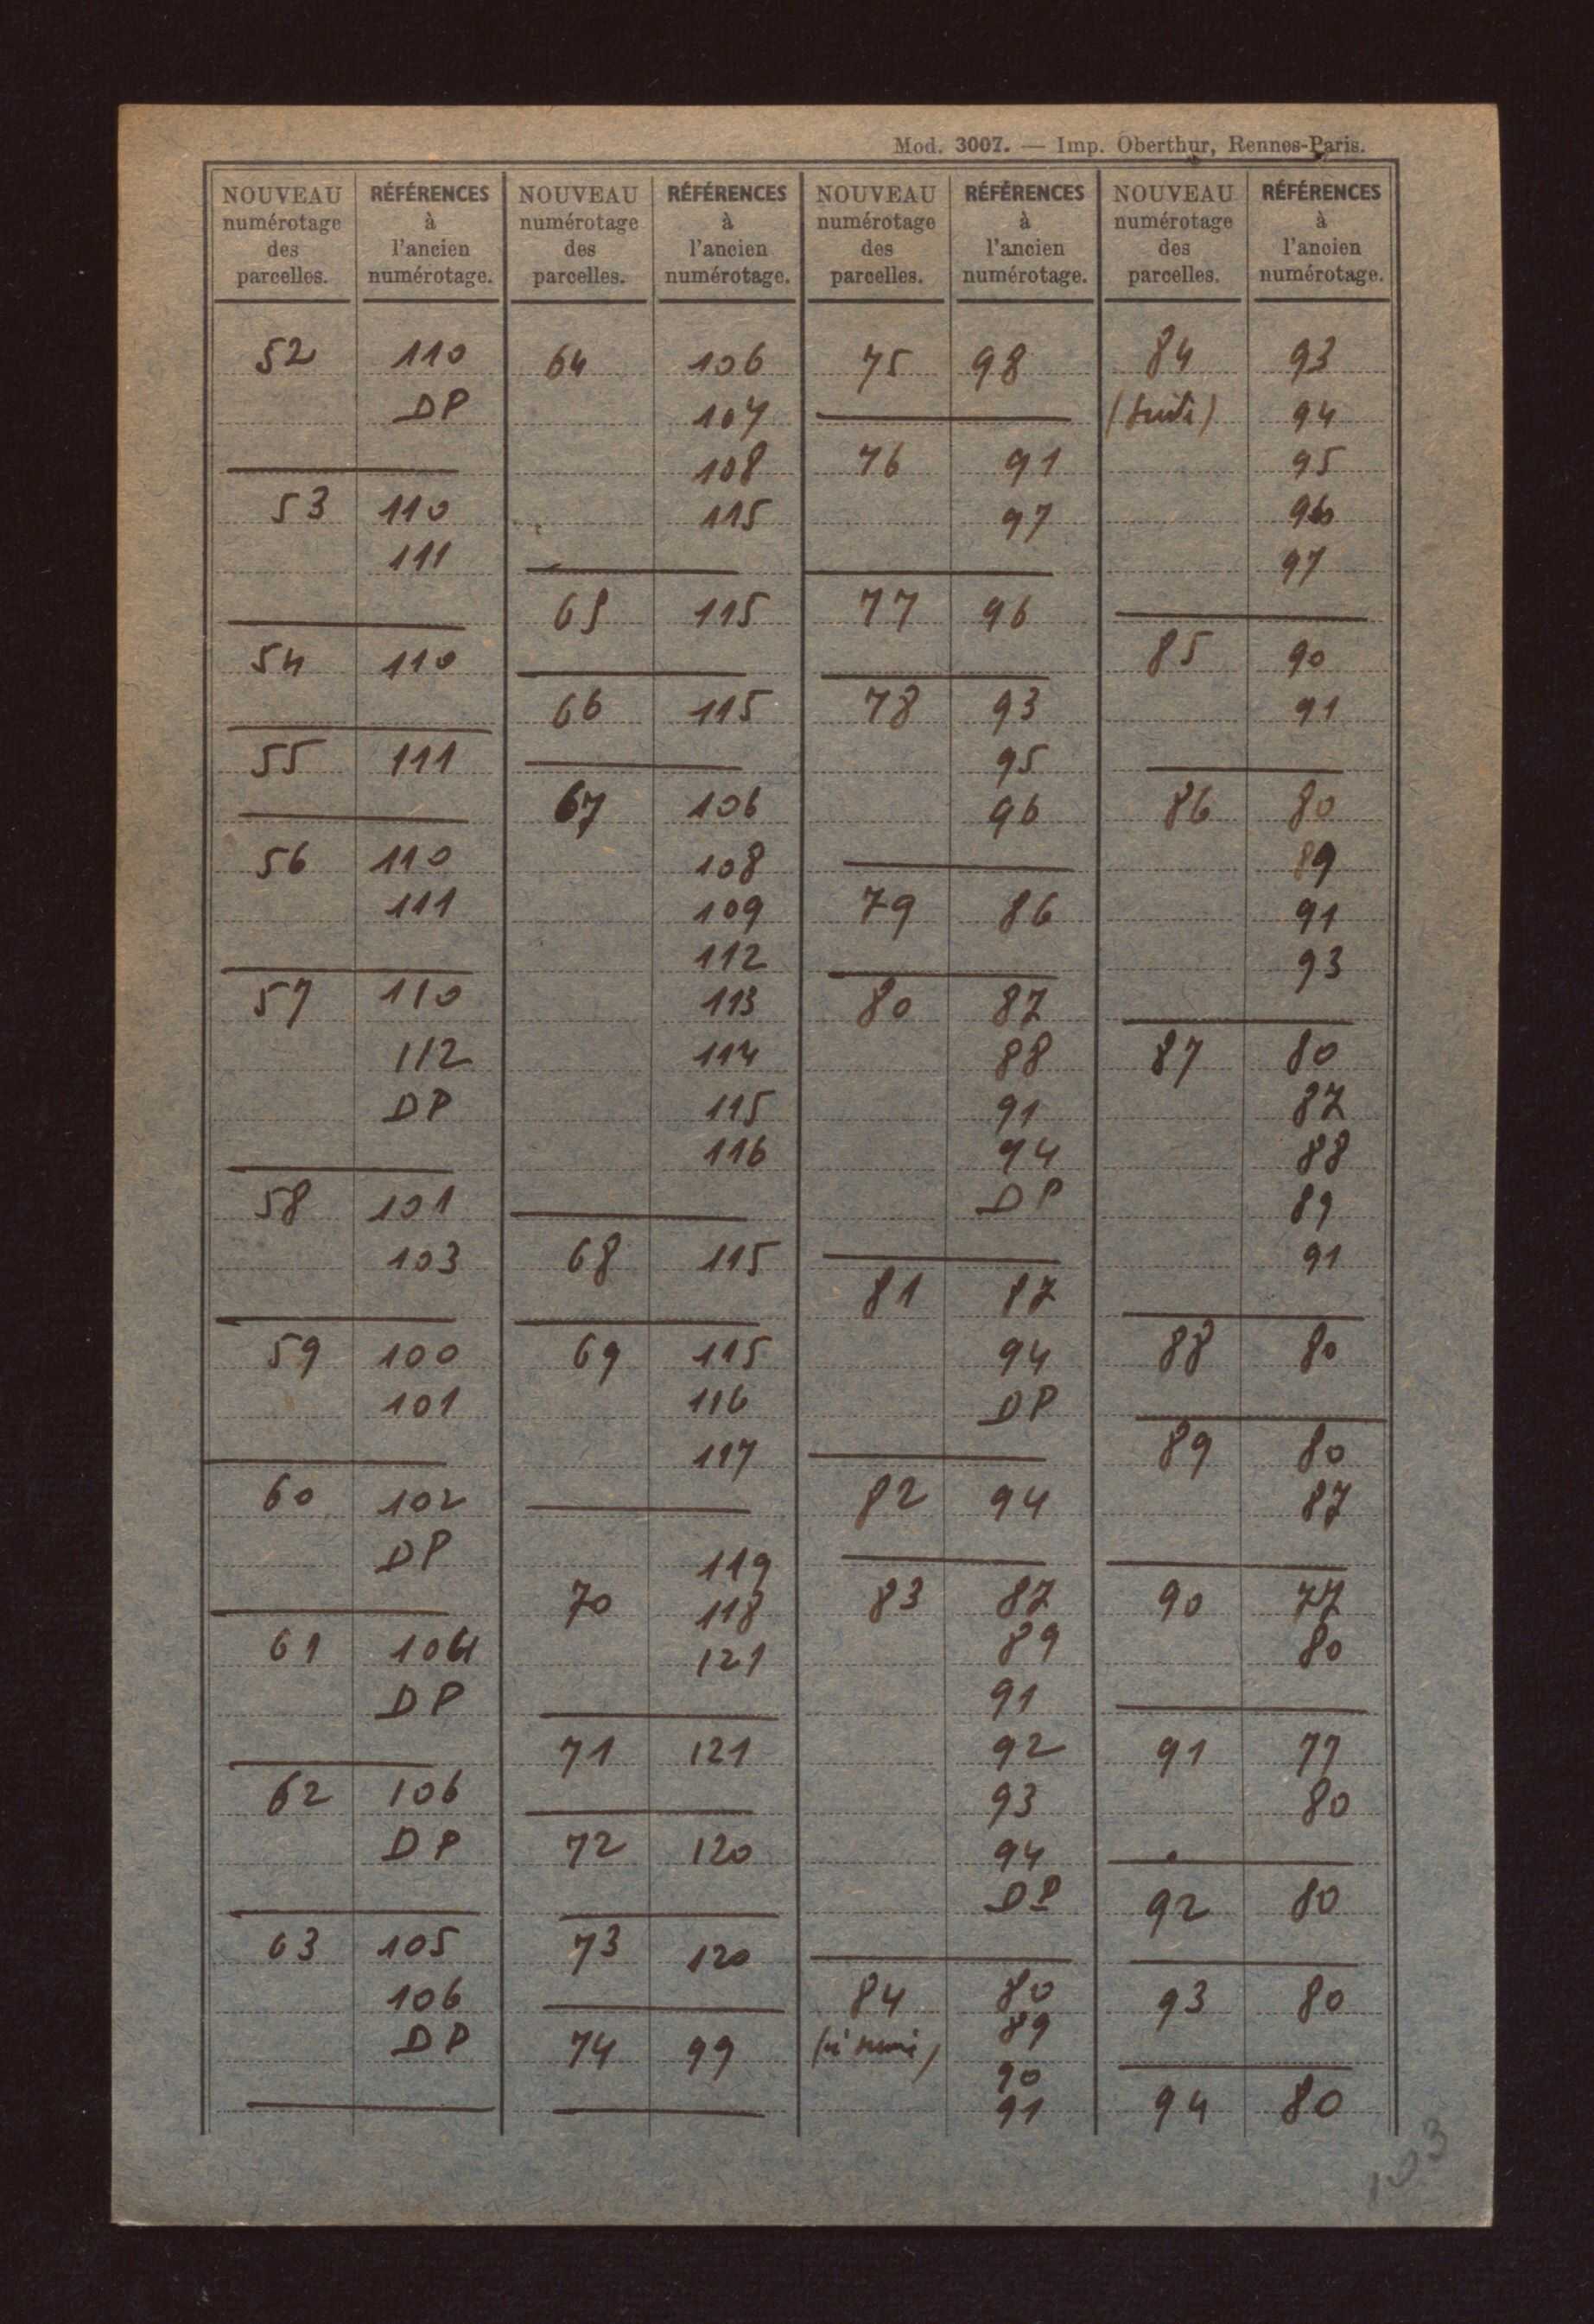 Mod. 3007. — Imp. Oberthur, Rennes-Paris.
NOUVEAU
numérotage
des
parcelles.
RÉFÉRENCES
à
l'ancien
numérotage.
52 110
DP
53 110
111
54 110
55 111
56 110
111
57 110
112
DP
58 101
103
59 100
101
60 102
DP
61 104
DP
62 106
DP
63 105
106
DP
NOUVEAU
numérotage
des
parcelles.
RÉFÉRENCES
à
l'ancien
numérotage.
64 106
107
108
115
65 115
66 115
67 106
108
109
112
113
114
115
116
68 115
69 115
116
117
119
70 118
121
71 121
72 120
73 120
74 99
NOUVEAU
numérotage
des
parcelles.
RÉFÉRENCES
à
l'ancien
numérotage.
75 98
76 91
97
77 96
78 93
95
96
79 86
80 87
88
91
94
DP
81 87
94
DP
82 94
83 87
89
91
92
93
94
DP
84 80
(à suivre) 89
90
91
NOUVEAU
numérotage
des
parcelles.
RÉFÉRENCES
à
l'ancien
numérotage.
84 93
(suite) 94
95
96
97
85 90
91
86 80
89
91
93
87 80
87
88
89
91
88 80
89 80
87
90 77
80
91 77
80
92 80
93 80
94 80
103